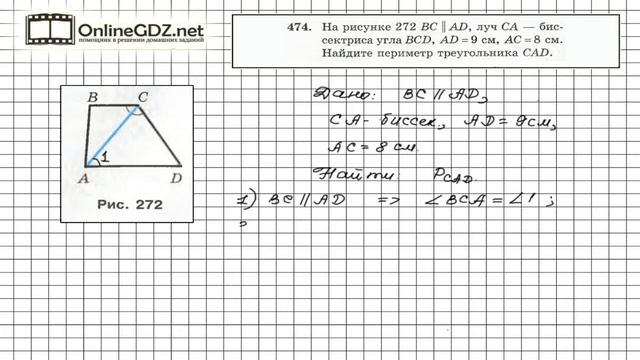 OnlineGDZ.net
помощник в решении домашних заданий
474. На рисунке 272 BC ∥ AD, луч CA — бис-
сектриса угла BCD, AD = 9 см, AC = 8 см.
Найдите периметр треугольника CAD.
B C
1
A D
Рис. 272
Дано: BC ∥ AD,
CA - биссек, AD = 9 см,
AC = 8 см.
Найти: P CAD.
1) BC ∥ AD => ∠BCA = ∠1 ;